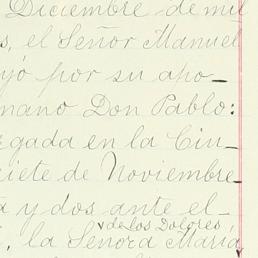 Diciembre de mil
s, el Señor Manuel
yó por su apo-
mano Don Pablo:
gada en la Ciu-
siete de Noviembre
a y dos ante el
de los Dolores
, la Señora María